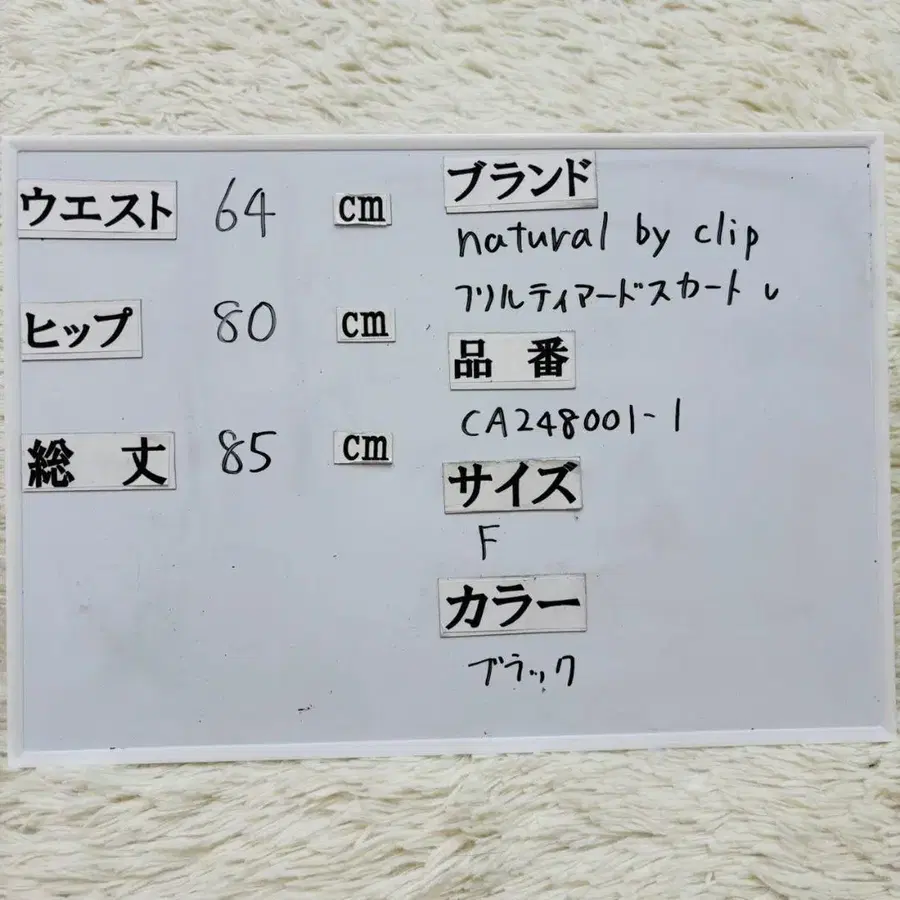 ウエスト 64 cm
ヒップ 80 cm
総丈 85 cm
ブランド
natural by clip
フリルティアードスカート
品番
CA248001-1
サイズ
F
カラー
ブラック